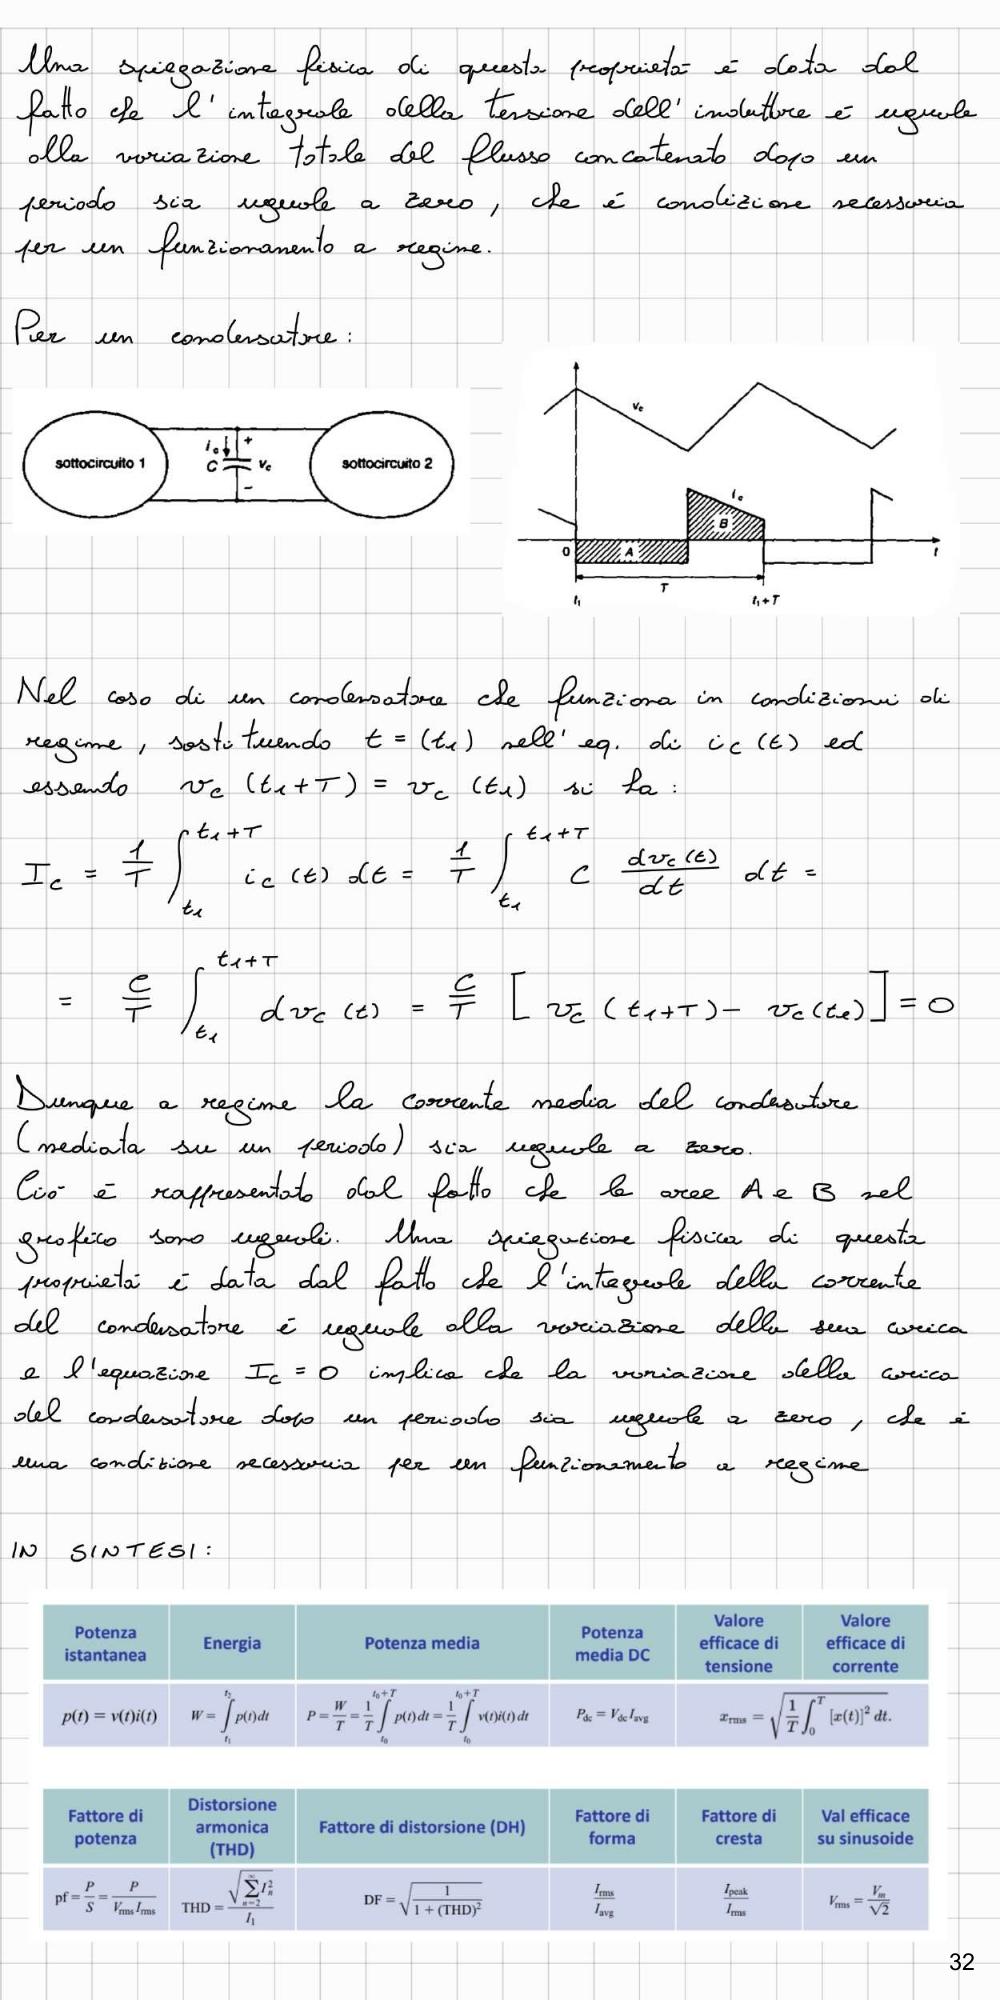 Una spiegazione fisica di questa proprietà è data dal
fatto che l'integrale della tensione dell'induttore è uguale
alla variazione totale del flusso concatenato dopo un
periodo sia uguale a zero, che è condizione necessaria
per un funzionamento a regime.
Per un condensatore:
sottocircuito 1
i_c
+
C
v_c
−
sottocircuito 2
v_c
i_c
B
0
A
t
T
t₁
t₁+T
Nel caso di un condensatore che funziona in condizioni di
regime, sostituendo t = (t₁) nell'eq. di i_c (t) ed
essendo v_c (t₁+T) = v_c (t₁) si ha:
I_c = 1/T ∫_{t₁}^{t₁+T} i_c (t) dt = 1/T ∫_{t₁}^{t₁+T} C dv_c(t)/dt dt =
= C/T ∫_{t₁}^{t₁+T} dv_c (t) = C/T [ v_c (t₁+T) − v_c(t₁) ] = 0
Dunque a regime la corrente media del condensatore
(mediata su un periodo) sia uguale a zero.
Ciò è rappresentato dal fatto che le aree A e B nel
grafico sono uguali. Una spiegazione fisica di questa
proprietà è data dal fatto che l'integrale della corrente
del condensatore è uguale alla variazione della sua carica
e l'equazione I_c = 0 implica che la variazione della carica
del condensatore dopo un periodo sia uguale a zero, che è
una condizione necessaria per un funzionamento a regime
IN SINTESI:
Potenza istantanea | Energia | Potenza media | Potenza media DC | Valore efficace di tensione | Valore efficace di corrente
p(t) = v(t)i(t) | W = ∫_{t₁}^{t₂} p(t)dt | P = W/T = 1/T ∫_{t₀}^{t₀+T} p(t)dt = 1/T ∫_{t₀}^{t₀+T} v(t)i(t)dt | P_dc = V_dc I_avg | x_rms = √(1/T ∫_0^T [x(t)]² dt.
Fattore di potenza | Distorsione armonica (THD) | Fattore di distorsione (DH) | Fattore di forma | Fattore di cresta | Val efficace su sinusoide
pf = P/S = P/(V_rms I_rms) | THD = √(∑_{n=2}^{∞} I_n²)/I₁ | DF = √(1/(1 + (THD)²)) | I_rms/I_avg | I_peak/I_rms | V_rms = V_m/√2
32